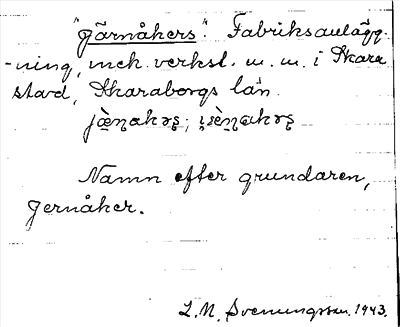 "Järnåkers". Fabriksanlägg-
-ning, mek. verkst. m. m. i Skara
stad, Skaraborgs län.
Namn efter grundaren,
Jernåker.
L. N. Svenungsson. 1943.